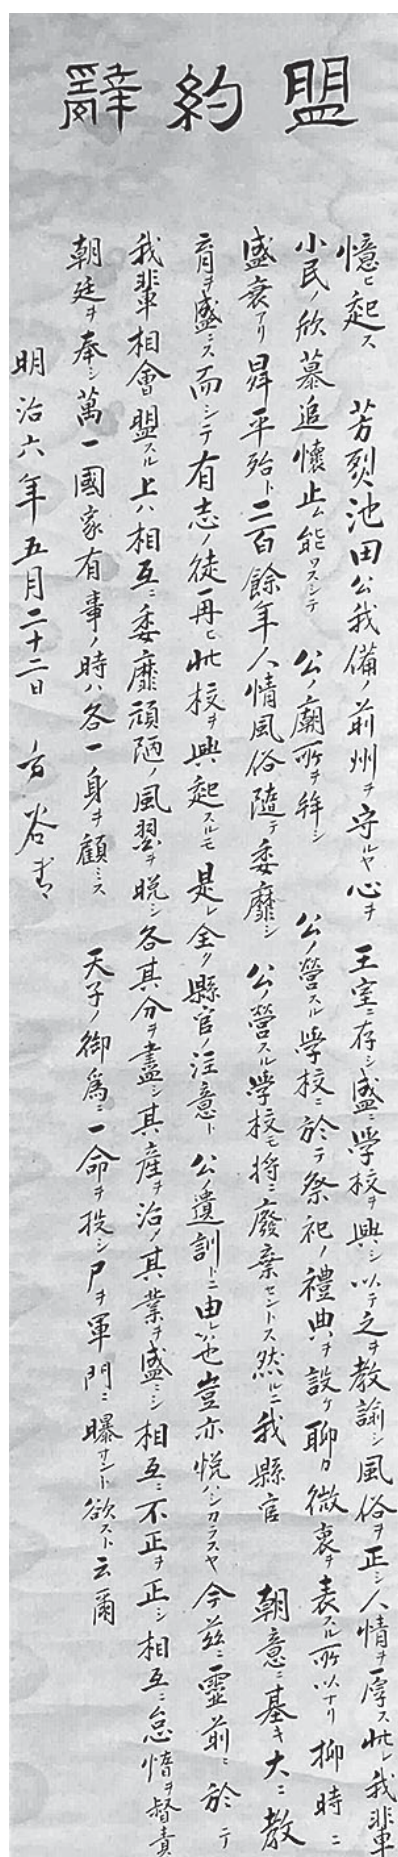 盟約辭
憶ヒ起ス 芳烈池田公我備ノ前州ヲ守ルヤ心ヲ 王室ニ存シ盛ニ學校ヲ興シ以テ之ヲ教諭シ風俗ヲ正シ人情ヲ厚ス此レ我輩
小民ノ欣慕追懷止ム能ワスシテ 公ノ廟所ヲ拜シ 公ノ營スル學校ニ於テ祭祀ノ禮典ヲ設ケ聊カ微衷ヲ表スル所以ナリ抑時ニ
盛衰アリ昇平殆ト二百餘年人情風俗隨テ委靡シ 公ノ營スル學校モ將ニ廢棄セントス然ルニ我縣官 朝意ニ基キ大ニ教
育ヲ盛ニス而シテ有志ノ徒再ヒ此校ヲ興起スルモ是レ全ク縣官ノ注意ト 公ノ遺訓トニ由レハ也豈亦悅ハシカラスヤ今茲ニ靈前ニ於テ
我輩相會盟スル上ハ相互ニ委靡頑陋ノ風習ヲ脱シ各其分ヲ盡シ其產ヲ治ノ其業ヲ盛ニシ相互ニ不正ヲ正シ相互ニ怠惰ヲ督責
朝廷ヲ奉シ萬一國家有事ノ時ハ各一身ヲ顧ミス 天子ノ御爲ニ一命ヲ投シ尸ヲ軍門ニ曝サント欲スト云爾
明治六年五月二十二日 方谷書